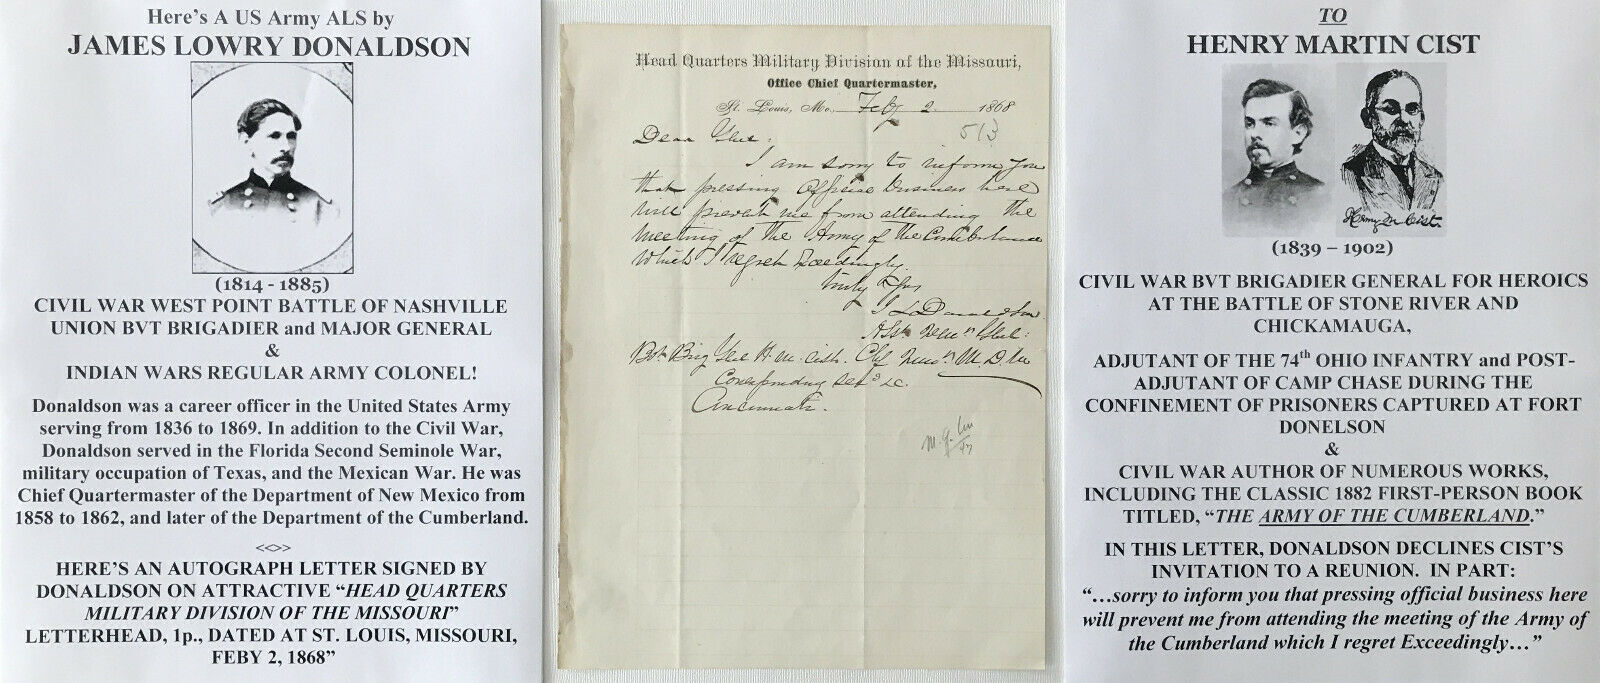 Here's A US Army ALS by
JAMES LOWRY DONALDSON
(1814 - 1885)
CIVIL WAR WEST POINT BATTLE OF NASHVILLE
UNION BVT BRIGADIER and MAJOR GENERAL
&
INDIAN WARS REGULAR ARMY COLONEL!
Donaldson was a career officer in the United States Army
serving from 1836 to 1869. In addition to the Civil War,
Donaldson served in the Florida Second Seminole War,
military occupation of Texas, and the Mexican War. He was
Chief Quartermaster of the Department of New Mexico from
1858 to 1862, and later of the Department of the Cumberland.
<<>>
HERE'S AN AUTOGRAPH LETTER SIGNED BY
DONALDSON ON ATTRACTIVE “HEAD QUARTERS
MILITARY DIVISION OF THE MISSOURI”
LETTERHEAD, 1p., DATED AT ST. LOUIS, MISSOURI,
FEBY 2, 1868”
Head Quarters Military Division of the Missouri,
Office Chief Quartermaster,
St. Louis, Mo., Feby 2 1868
513
Dear Genl:
I am sorry to inform you
that pressing Official business here
will prevent me from attending the
meeting of the Army of the Cumberland
which I regret Exceedingly.
truly Yrs
J L Donaldson
Bvt Brig Genl H. M. Cist.
Corresponding Secy &c.
Cincinnati.
TO
HENRY MARTIN CIST
Henry M. Cist.
(1839 – 1902)
CIVIL WAR BVT BRIGADIER GENERAL FOR HEROICS
AT THE BATTLE OF STONE RIVER AND
CHICKAMAUGA,
ADJUTANT OF THE 74th OHIO INFANTRY and POST-
ADJUTANT OF CAMP CHASE DURING THE
CONFINEMENT OF PRISONERS CAPTURED AT FORT
DONELSON
&
CIVIL WAR AUTHOR OF NUMEROUS WORKS,
INCLUDING THE CLASSIC 1882 FIRST-PERSON BOOK
TITLED, “THE ARMY OF THE CUMBERLAND.”
IN THIS LETTER, DONALDSON DECLINES CIST'S
INVITATION TO A REUNION. IN PART:
“…sorry to inform you that pressing official business here
will prevent me from attending the meeting of the Army of
the Cumberland which I regret Exceedingly…”